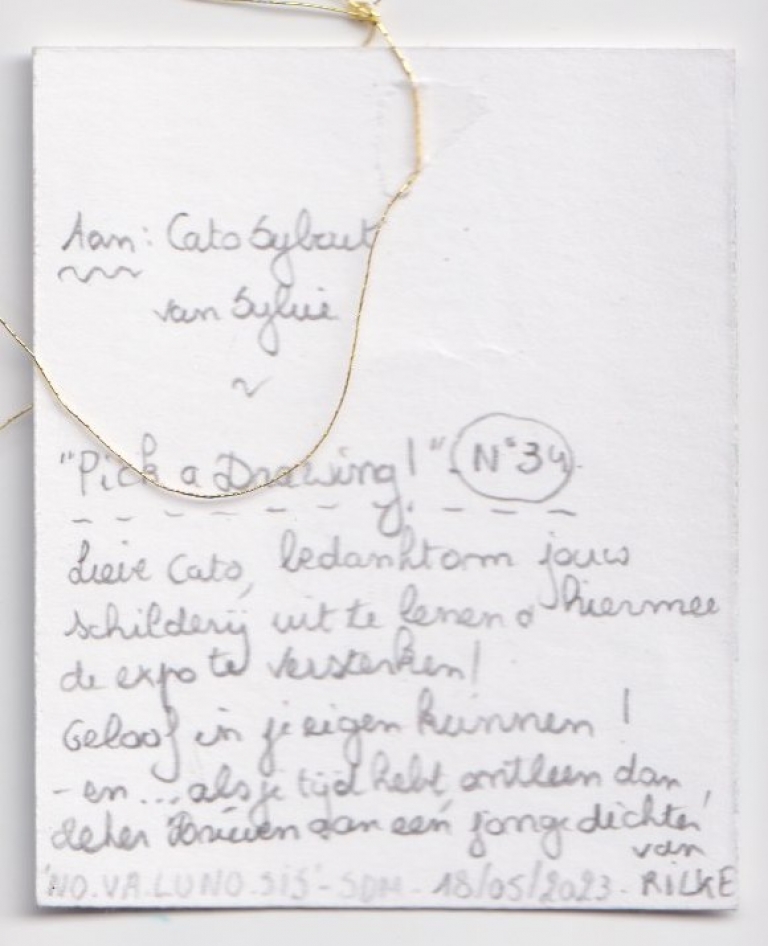 Aan: Cato Sybaut
van Sylvie
"Pick a Drawing!" N°34
Lieve Cato, bedankt om jouw
schilderij uit te lenen & hiermee
de expo te versterken!
Geloof in je eigen kunnen!
- en... als je tijd hebt, ontleen dan
zeker Brieven aan een jonge dichter
van
'NO.VA.LUNO.SIS' - SDM - 18/05/2023 - RILKE